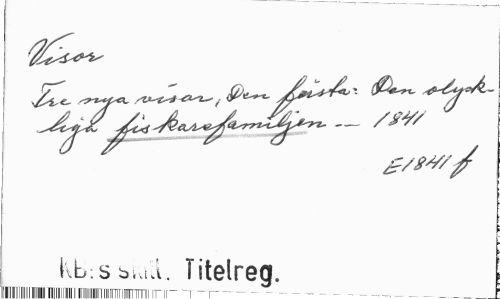 Visor
Tre nya visor, Den första: Den olyck-
liga fiskarefamiljen -- 1841
E1841 f
KB:s skill. Titelreg.